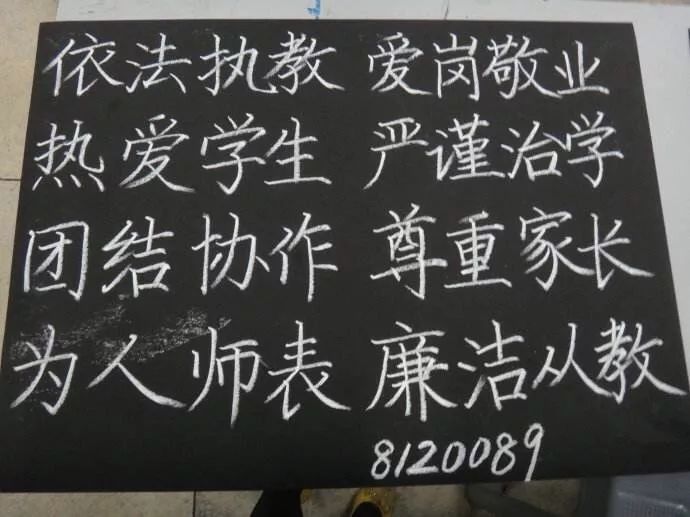 依法执教 爱岗敬业
热爱学生 严谨治学
团结协作 尊重家长
为人师表 廉洁从教
8120089